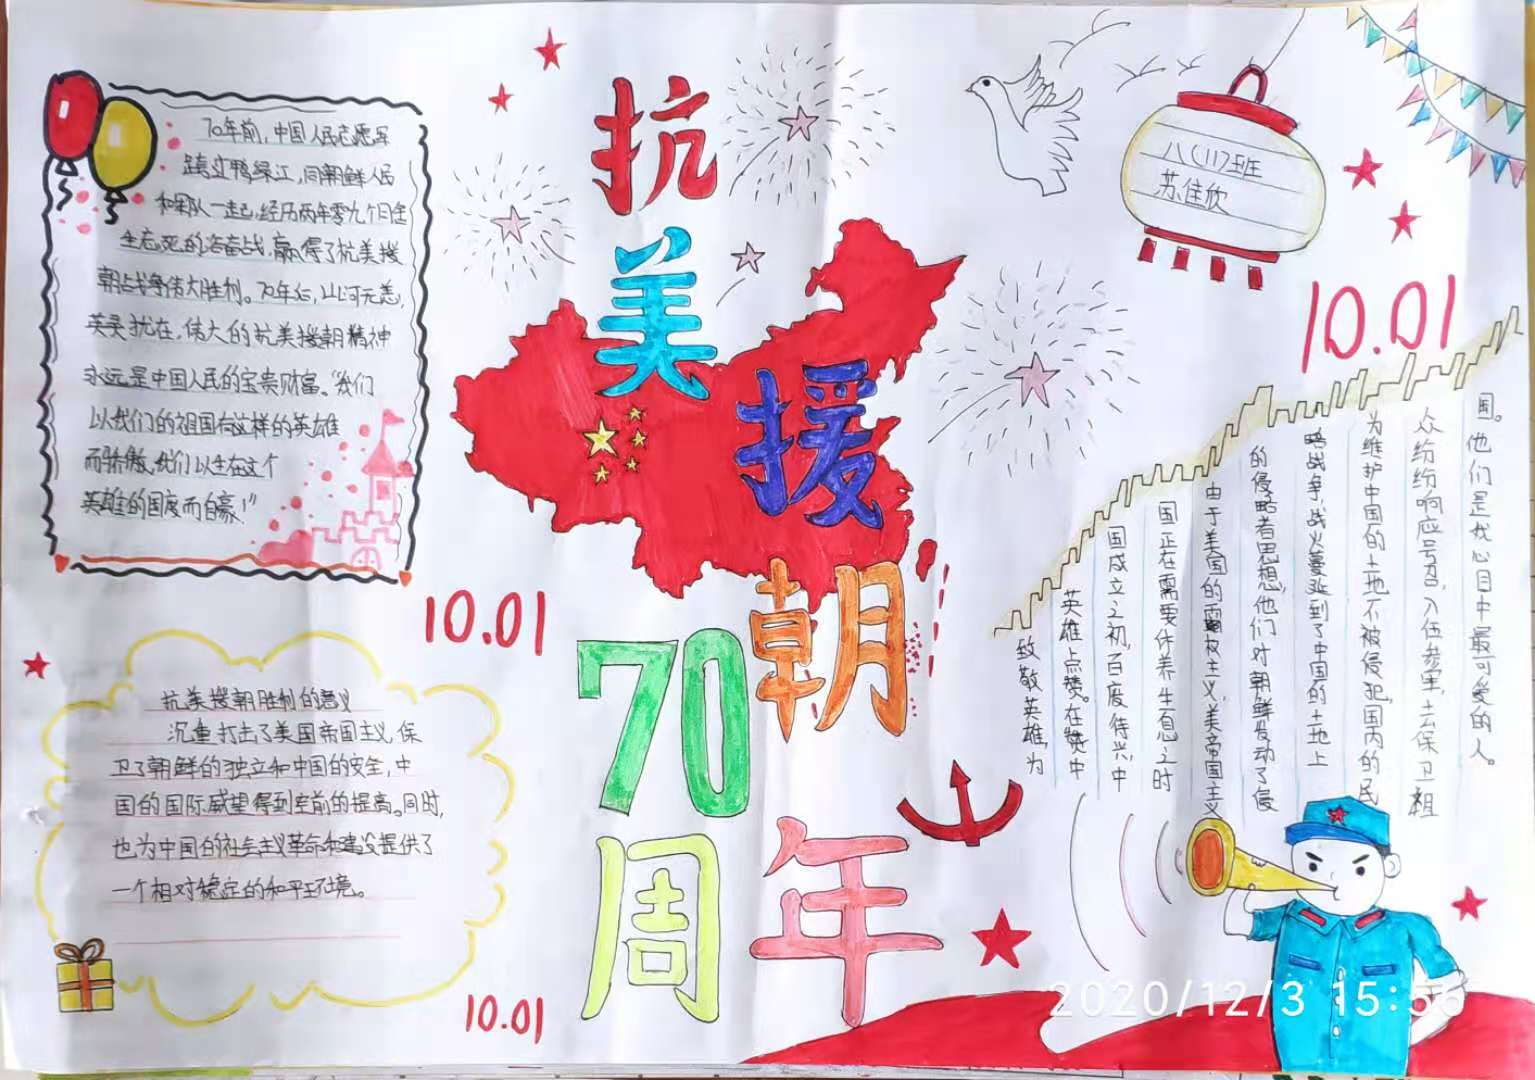 70年前,中国人民志愿军
跨过鸭绿江,同朝鲜人民
和军队一起,经历两年零九个月舍
生忘死的浴奋战,赢得了抗美援
朝战争伟大胜利。70年后,山河无恙,
英灵犹在,伟大的抗美援朝精神
永远是中国人民的宝贵财富。“我们
以我们的祖国有这样的英雄
而骄傲,我们以生在这个
英雄的国度而自豪!”
抗美援朝70周年
八(11)班
苏佳欣
10.01
10.01
10.01
抗美援朝胜利的意义
沉重打击了美国帝国主义,保
卫了朝鲜的独立和中国的安全,中
国的国际威望得到空前的提高。同时,
也为中国的社会主义革命和建设提供了
一个相对稳定的和平环境。
致敬英雄,为
英雄点赞。在赞中
国成立之初,百废待兴,中
国正在需要休养生息之时
由于美国的霸权主义,美帝国主义
的侵略者思想,他们对朝鲜发动了侵
略战争,战火蔓延到了中国的土地上
为维护中国的土地不被侵犯,国内的民
众纷纷响应号召,入伍参军,去保卫祖
国。他们是我心目中最可爱的人。
2020/12/3 15:56